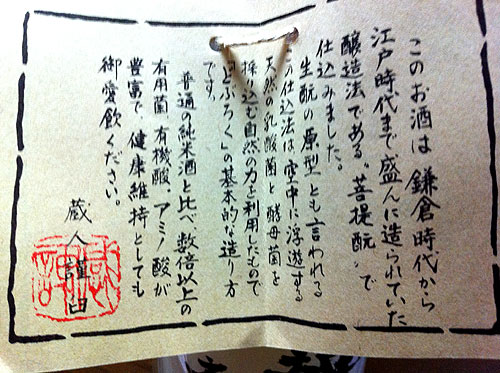 このお酒は鎌倉時代から
江戸時代まで盛んに造られていた
醸造法である。菩提酛。で
仕込みました。
生酛の原型とも言われる
この仕込法は空中に浮遊する
天然の乳酸菌と酵母菌を
採り込む自然の力を利用したもので
「どぶろく」の基本的な造り方
です。
普通の純米酒と比べ数倍以上の
有用菌 有機酸、アミノ酸が
豊富で、健康維持としても
御愛飲ください。
蔵人謹白